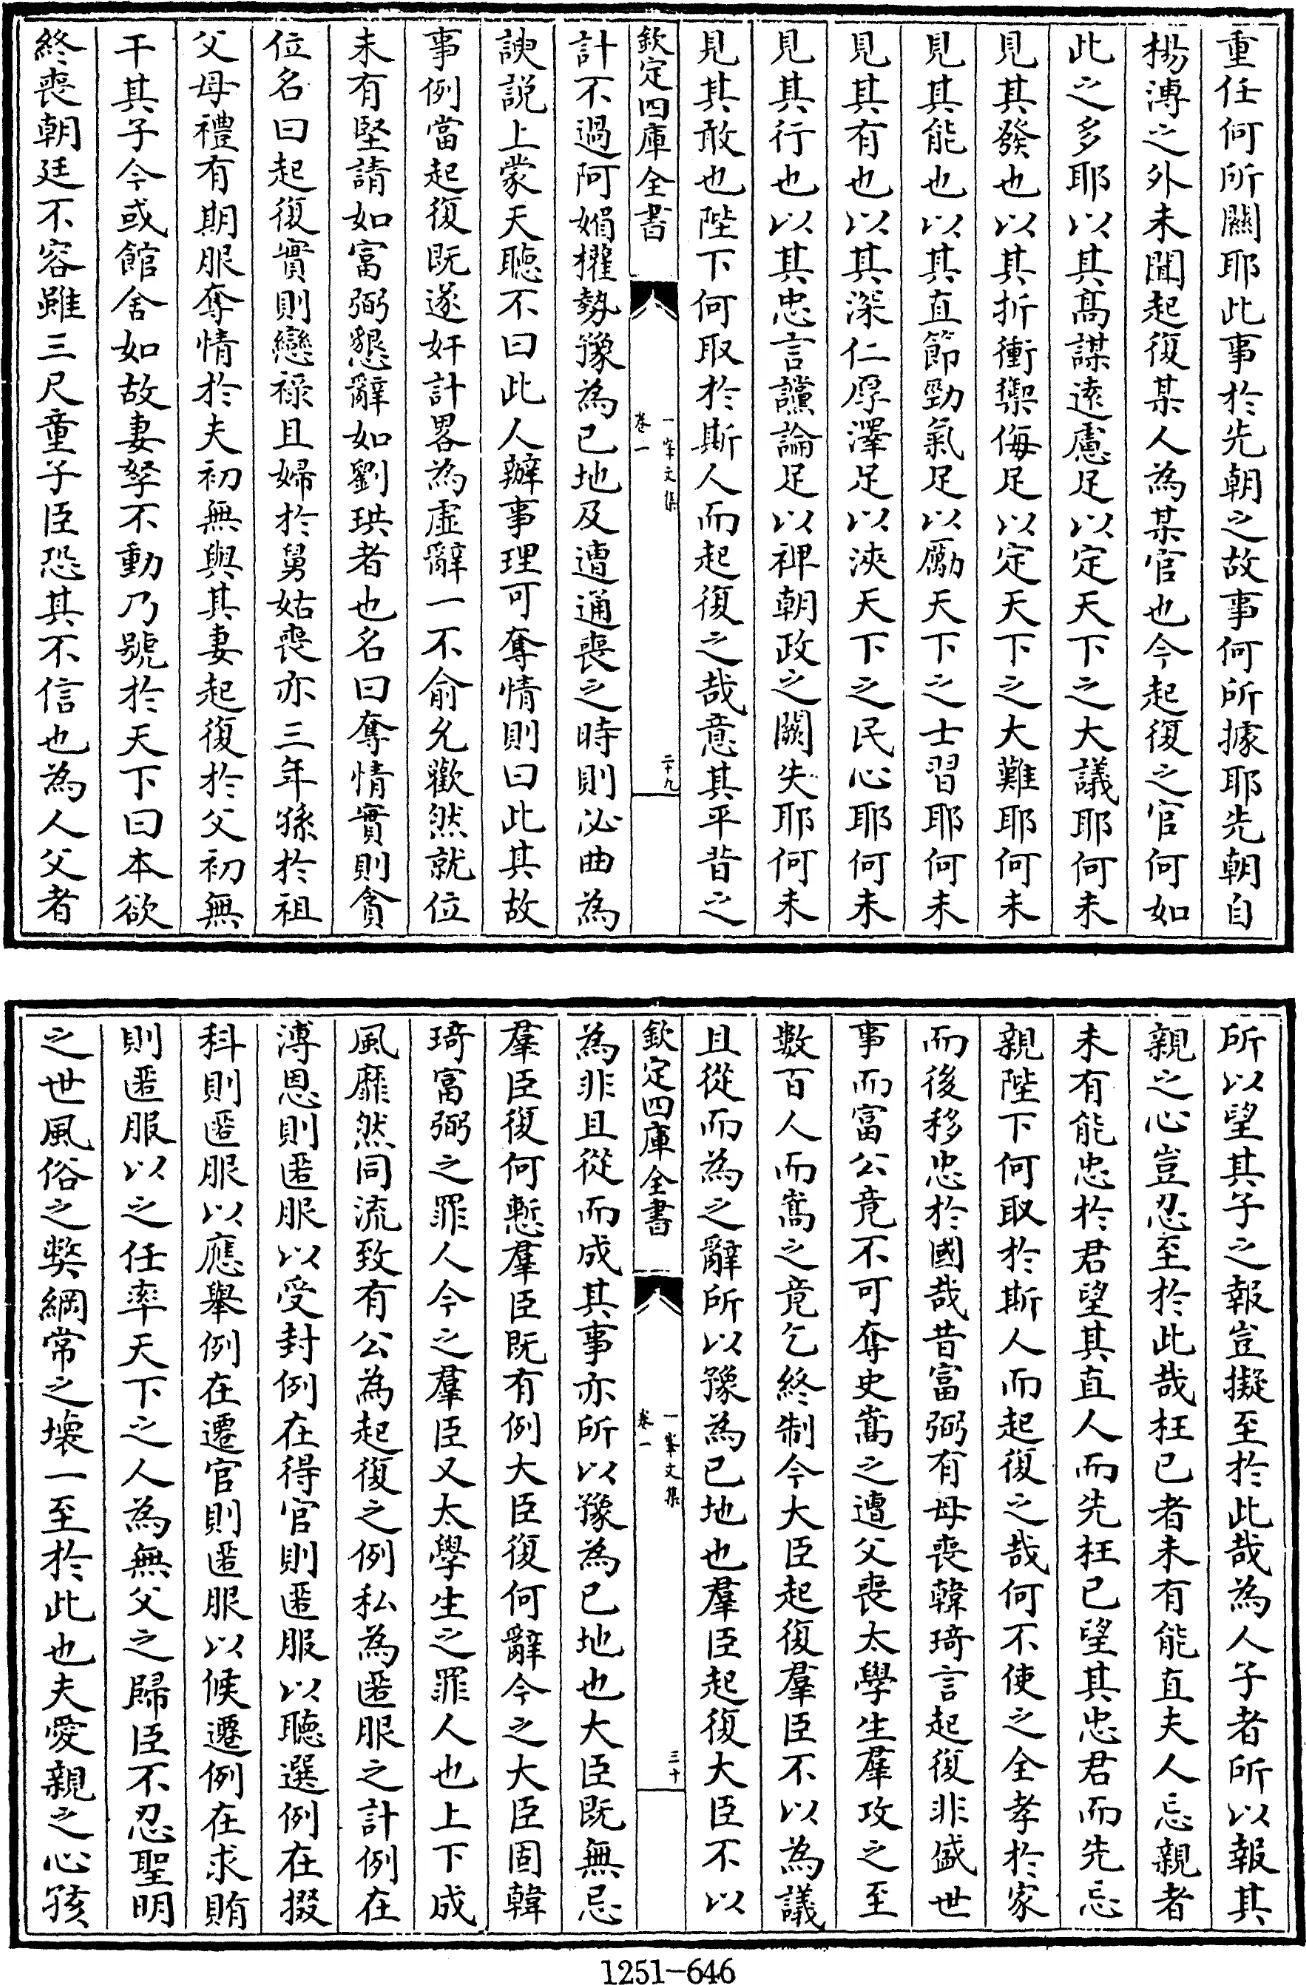 重任何所關耶此事於先朝之故事何所據耶先朝自
楊溥之外未聞起復某人為某官也今起復之官何如
此之多耶以其髙謀逺慮足以定天下之大議耶何未
見其發也以其折衝禦侮足以定天下之大難耶何未
見其能也以其直節勁氣足以勵天下之士習耶何未
見其有也以其深仁厚澤足以浹天下之民心耶何未
見其行也以其忠言讜論足以裨朝政之闕失耶何未
見其敢也陛下何取於斯人而起復之哉意其平昔之
欽定四庫全書
一峯文集
卷一
二十九
計不過阿媚權勢豫為已地及遭通喪之時則必曲為
諛說上蒙天聽不曰此人辦事理可奪情則曰此其故
事例當起復既遂奸計畧為虛辭一不俞允歡然就位
未有堅請如富弼懇辭如劉珙者也名曰奪情實則貪
位名曰起復實則戀祿且婦於舅姑喪亦三年孫於祖
父母禮有期服奪情於夫初無與其妻起復於父初無
干其子今或館舍如故妻孥不動乃號於天下曰本欲
終喪朝廷不容雖三尺童子臣恐其不信也為人父者
所以望其子之報豈擬至於此哉為人子者所以報其
親之心豈忍至於此哉枉已者未有能直夫人忘親者
未有能忠於君望其直人而先枉已望其忠君而先忘
親陛下何取於斯人而起復之哉何不使之全孝於家
而後移忠於國哉昔富弼有母喪韓琦言起復非盛世
事而富公竟不可奪史嵩之遭父喪太學生羣攻之至
數百人而嵩之竟乞終制今大臣起復羣臣不以為議
且從而為之辭所以豫為已地也羣臣起復大臣不以
欽定四庫全書
一峯文集
卷一
三十
為非且從而成其事亦所以豫為已地也大臣既無忌
羣臣復何慙羣臣既有例大臣復何辭今之大臣固韓
琦富弼之罪人今之羣臣又太學生之罪人也上下成
風靡然同流致有公為起復之例私為匿服之計例在
溥恩則匿服以受封例在得官則匿服以聽選例在掇
科則匿服以應舉例在遷官則匿服以候遷例在求賄
則匿服以之任率天下之人為無父之歸臣不忍聖明
之世風俗之弊綱常之壞一至於此也夫愛親之心孩
1251-646